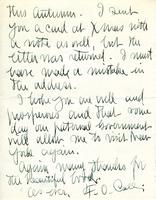 this Autumn. I sent
you a card at Xmas with
a note as well, but the
letter was returned. I must
have made a mistake in
the address.
I hope you are well and
prosperous and that some
day our national Government
will allow me to visit New
York again.
Again many thanks for
the beautiful book,